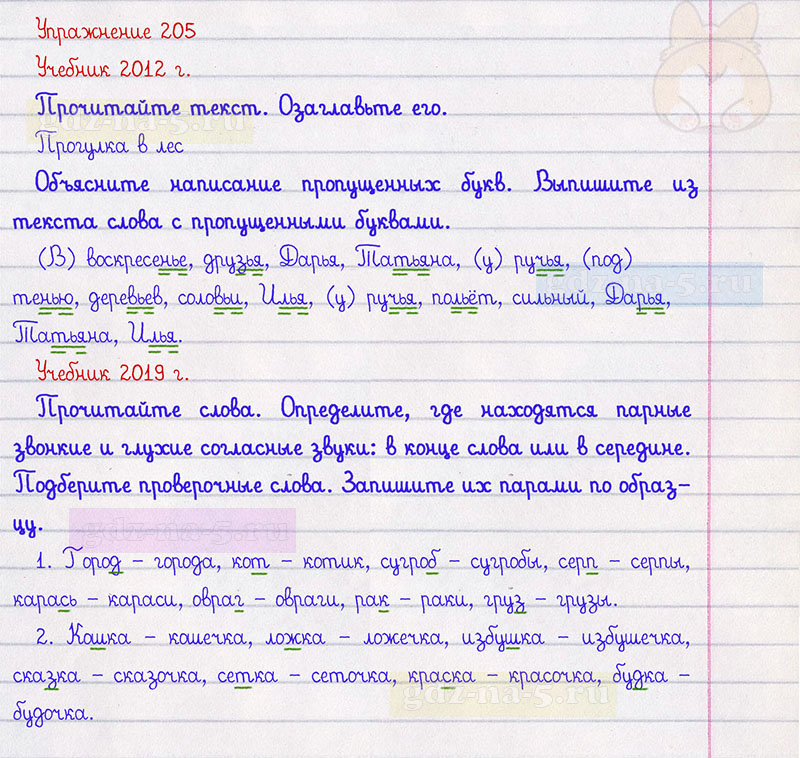 Упражнение 205
Учебник 2012 г.
Прочитайте текст. Озаглавьте его.
gdz-na-5.ru
Прогулка в лес
Объясните написание пропущенных букв. Выпишите из
текста слова с пропущенными буквами.
(В) воскресенье, друзья, Дарья, Татьяна, (у) ручья, (под)
gdz-na-5.ru
тенью, деревьев, соловьи, Илья, (у) ручья, польёт, сильный, Дарья,
Татьяна, Илья.
Учебник 2019 г.
Прочитайте слова. Определите, где находятся парные
звонкие и глухие согласные звуки: в конце слова или в середине.
Подберите проверочные слова. Запишите их парами по образ-
цу.
gdz-na-5.ru
1. Город - города, кот - котик, сугроб - сугробы, серп - серпы,
карась - караси, овраг - овраги, рак - раки, груз - грузы.
2. Кошка - кошечка, ложка - ложечка, избушка - избушечка,
сказка - сказочка, сетка - сеточка, краска - красочка, будка -
gdz-na-5.ru
будочка.